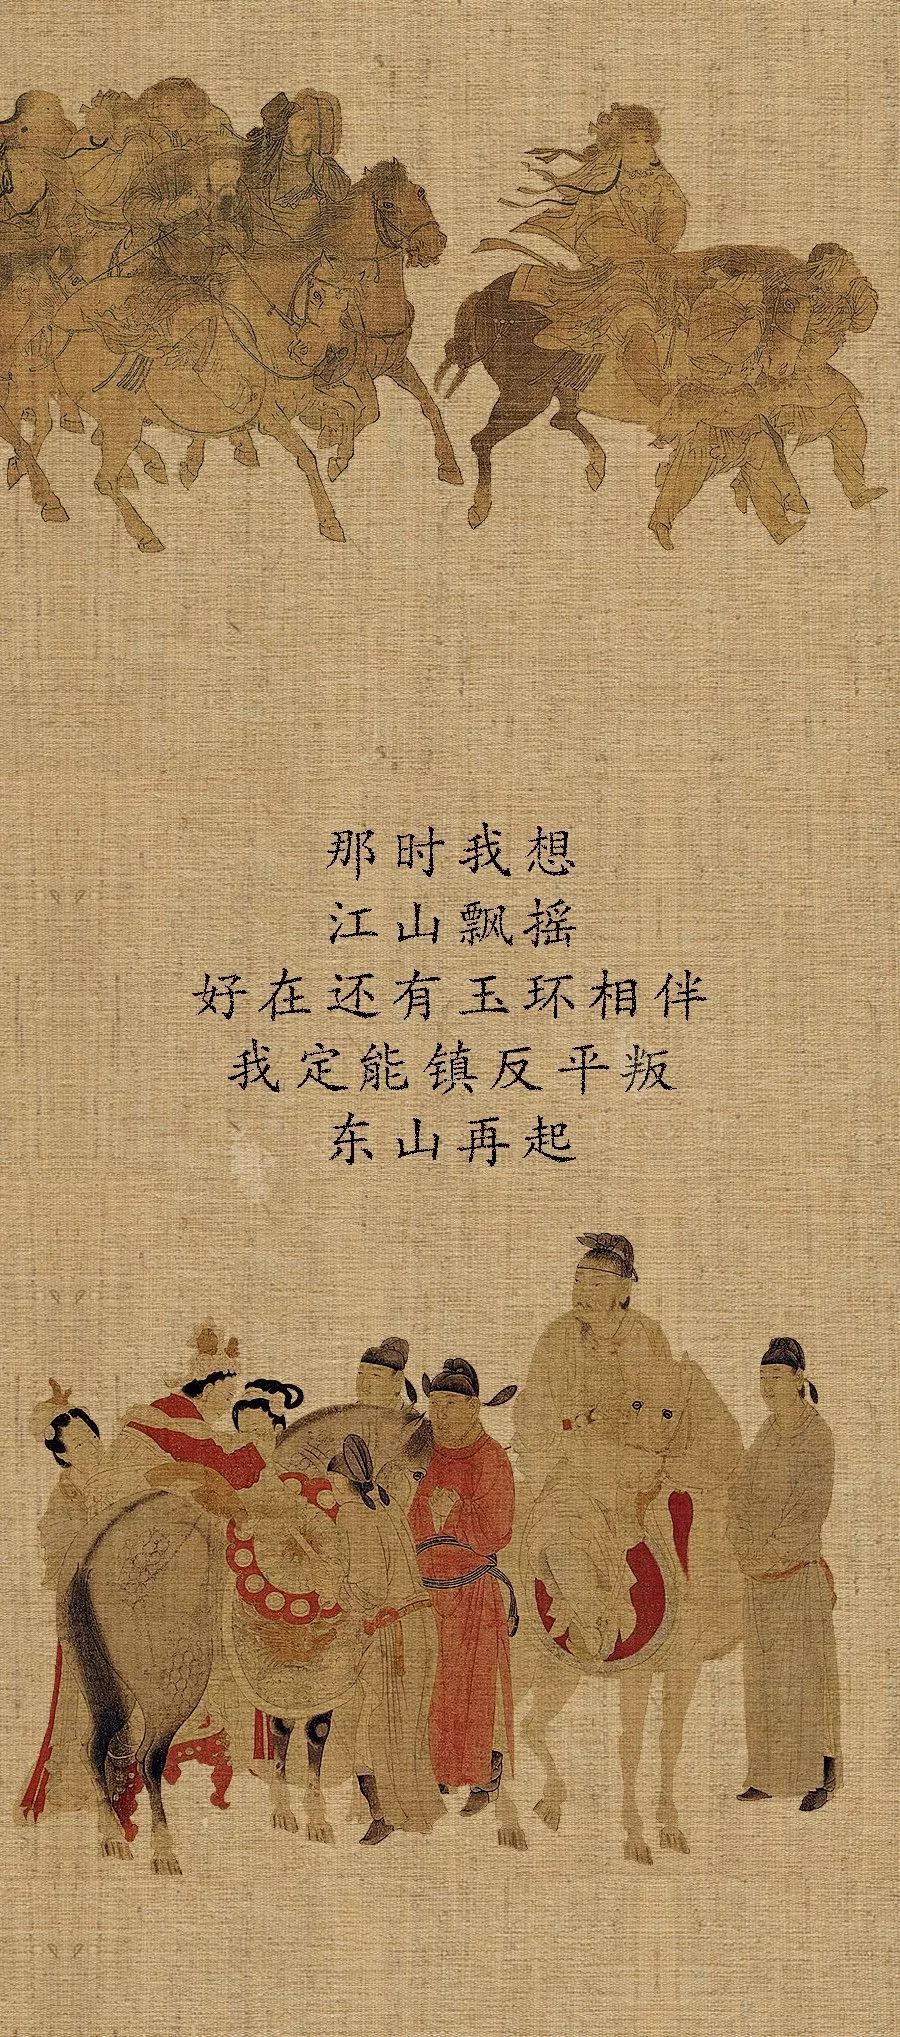 那时我想
江山飘摇
好在还有玉环相伴
我定能镇反平叛
东山再起